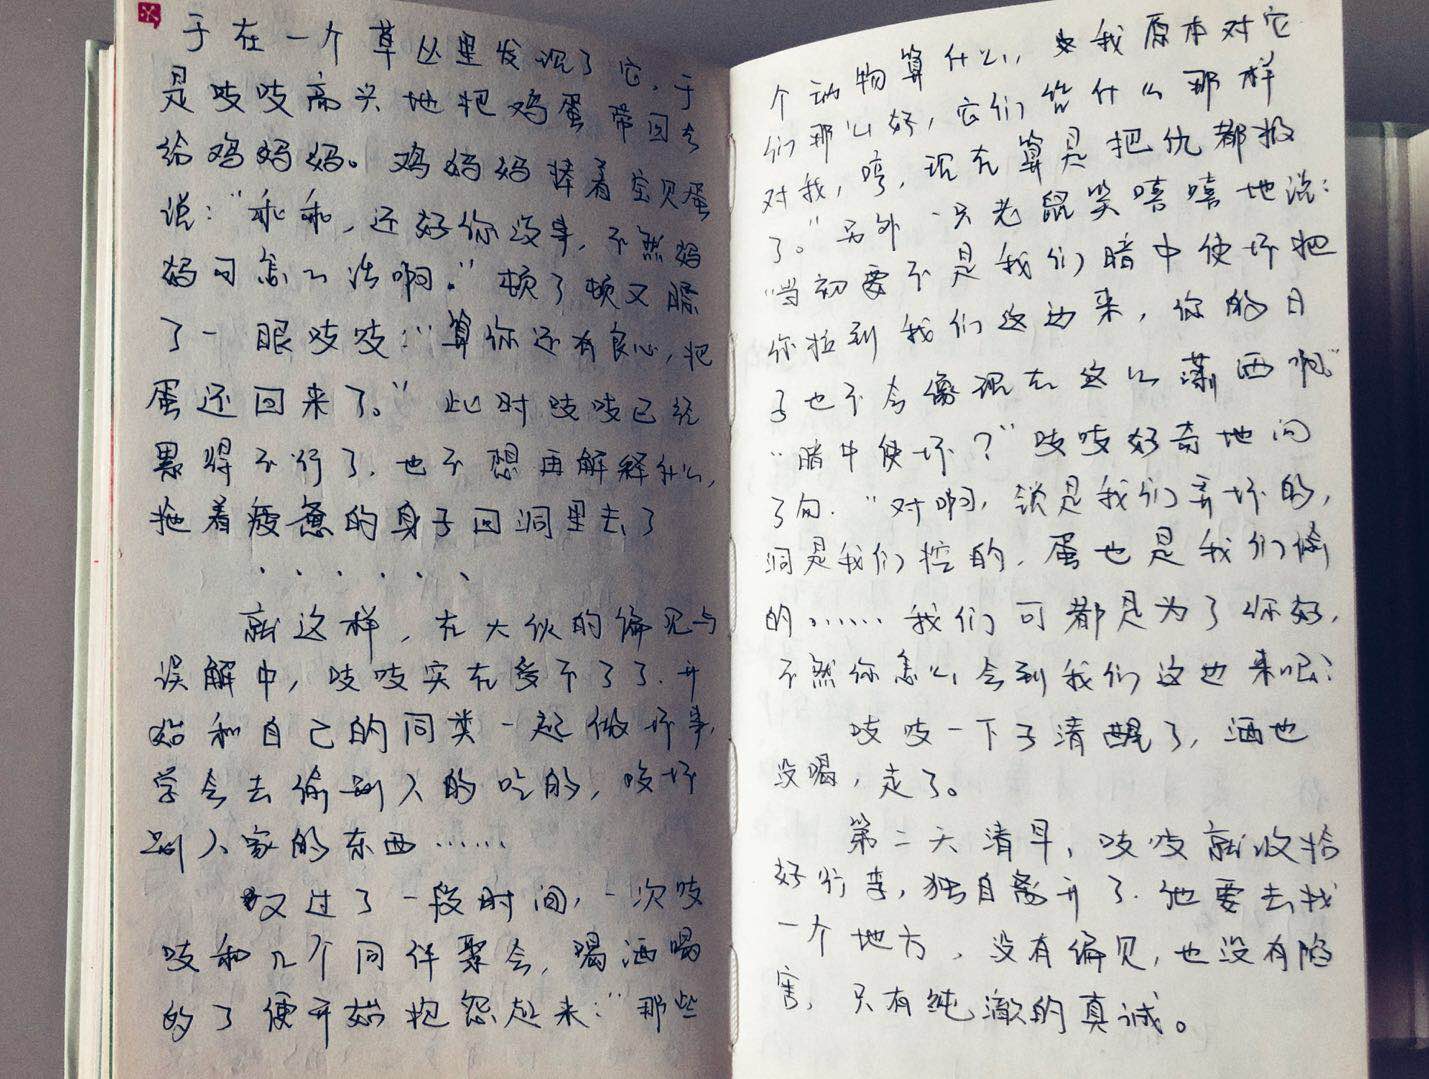 于在一个草丛里发现了它，于
是吱吱高兴地把鸡蛋带回去
给鸡妈妈。鸡妈妈捧着宝贝蛋
说：“乖乖，还好你没事，不然妈
妈可怎么活啊。”顿了顿又瞟
了一眼吱吱：“算你还有良心，把
蛋还回来了。”此时吱吱已经
累得不行了，也不想再解释什么，
拖着疲惫的身子回洞里去了
······
就这样，在大伙的偏见与
误解中，吱吱实在受不了了，开
始和自己的同类一起做坏事，
学会去偷别人的吃的，咬坏
别人家的东西······
又过了一段时间，一次吱
吱和几个同伴聚会，喝酒喝
的了便开始抱怨起来：“那些
个动物算什么，我原本对它
们那么好，它们凭什么那样
对我，哼，现在算是把仇都报
了。”另外一只老鼠笑嘻嘻地说：
“当初要不是我们暗中使坏把
你拉到我们这边来，你的日
子也不会像现在这么潇洒啊”
“暗中使坏？”吱吱好奇地问
了句．“对啊，就是我们弄坏的，
洞是我们挖的，蛋也是我们偷
的······我们可都是为了你好，
不然你怎么会到我们这边来呢？
吱吱一下子清醒了，酒也
没喝，走了。
第二天清早，吱吱就收拾
好行李，独自离开了．他要去找
一个地方，没有偏见，也没有陷
害，只有纯澈的真诚。